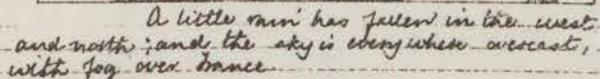 A little rain has fallen in the west
and north; and the sky is everywhere overcast,
with fog over France